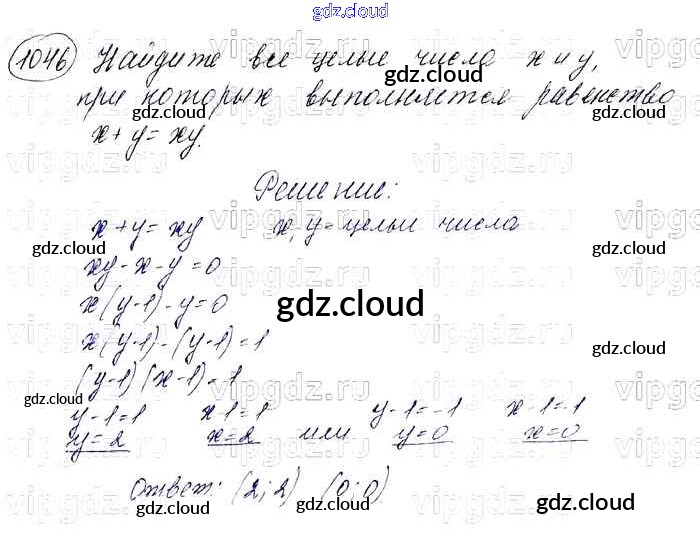 gdz.cloud
1046 Найдите все целые числа x и y,
при которых выполняется равенство
x + y = xy.
Решение:
x + y = xy   x, y – целые числа
xy - x - y = 0
x(y-1) - y = 0
x(y-1) - (y-1) = 1
(y-1)(x-1) = 1
y-1=1   x-1=1   y-1=-1   x-1=-1
y=2   x=2   или   y=0   x=0
Ответ: (2; 2) (0; 0)
gdz.cloud
gdz.cloud
gdz.cloud
gdz.cloud
gdz.cloud
gdz.cloud
gdz.cloud
gdz.cloud
gdz.cloud
gdz.cloud